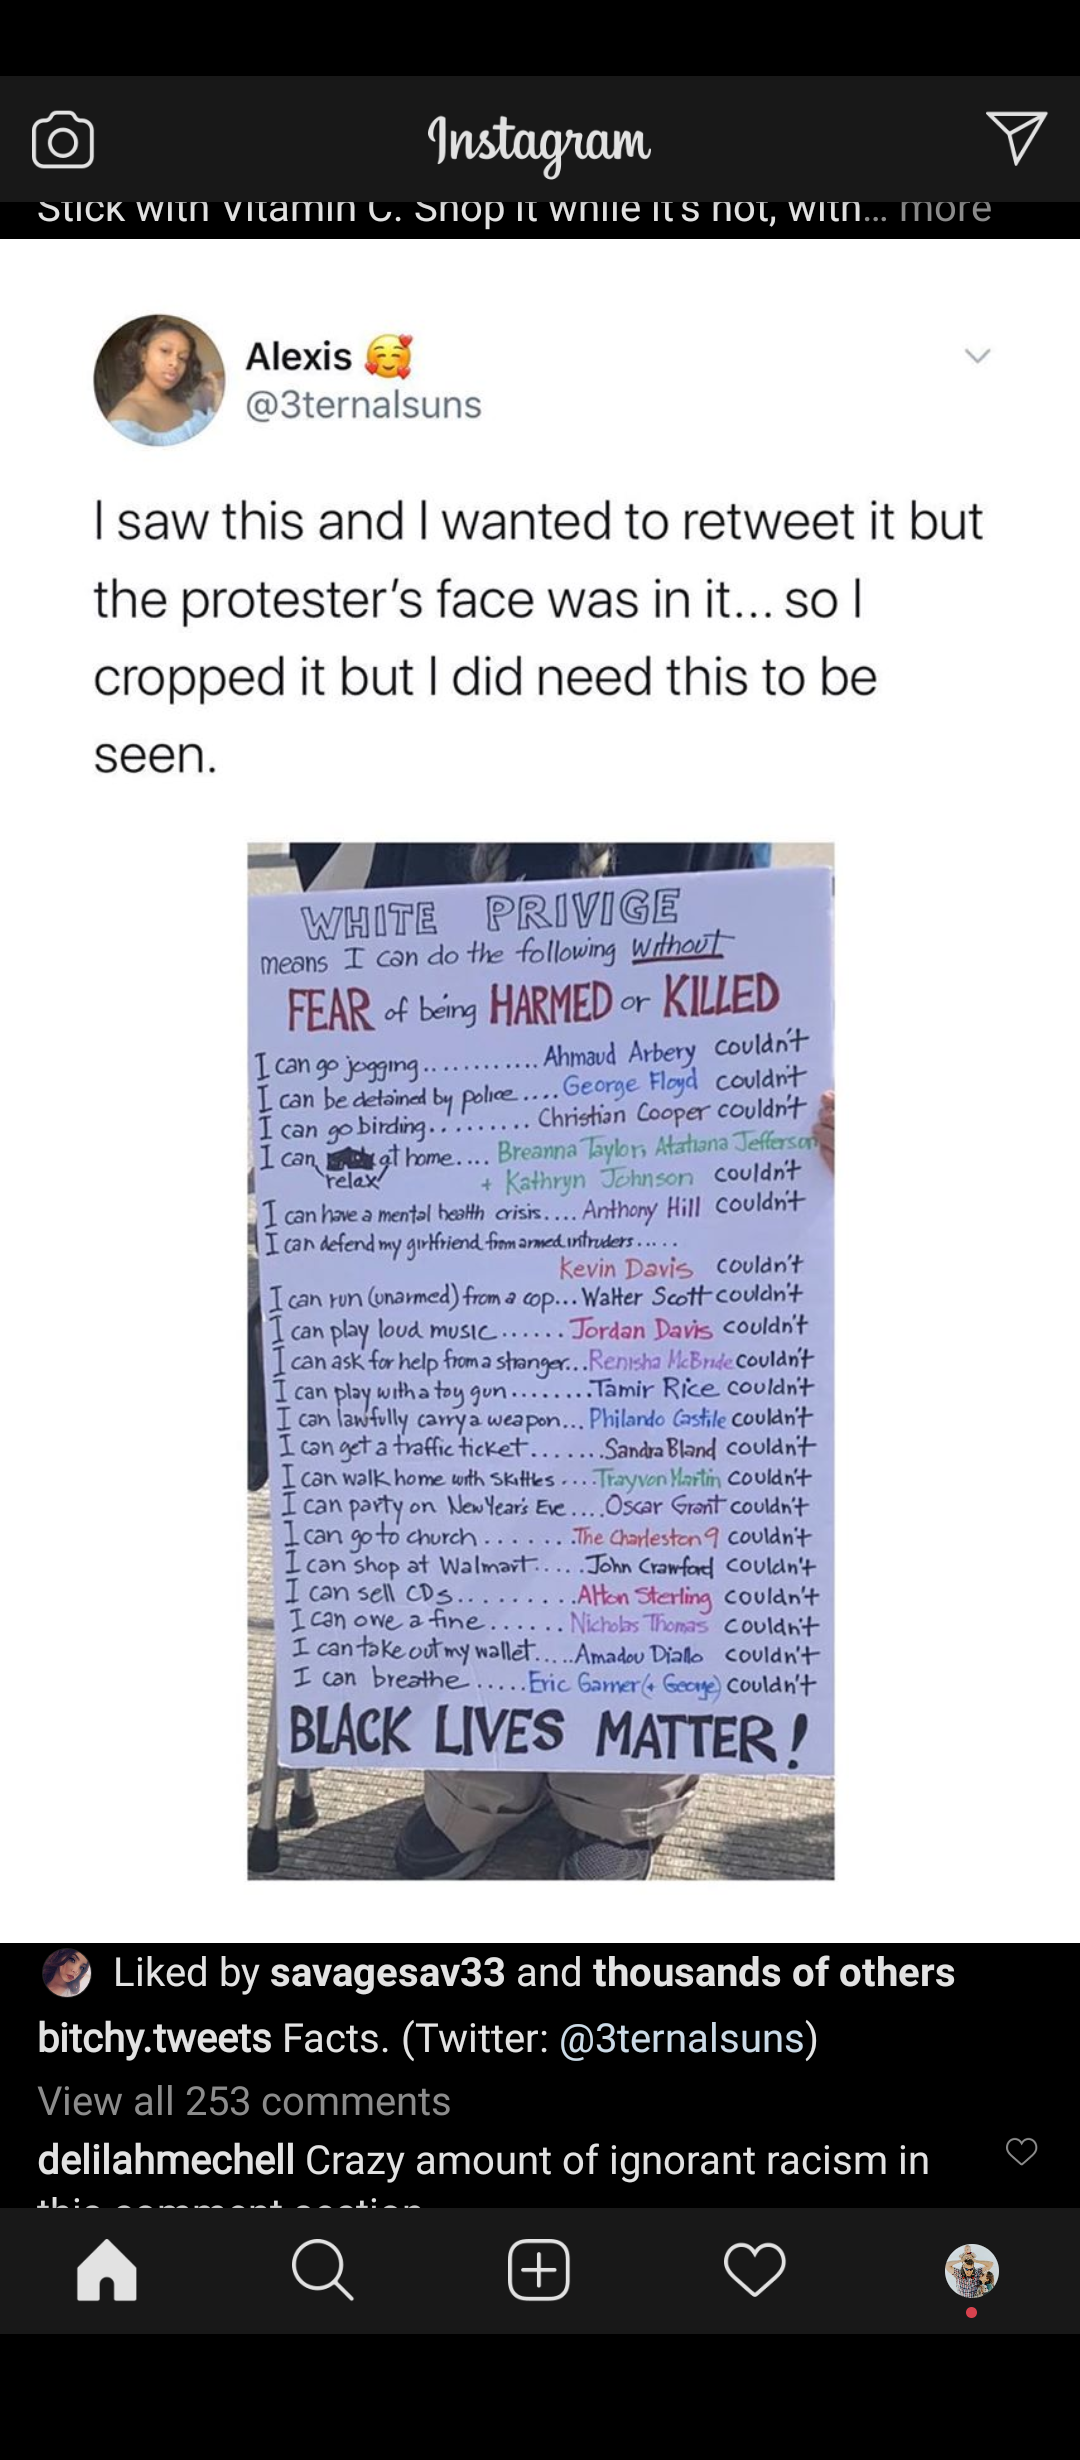 Instagram
Stick with Vitamin C. Shop it while it's hot, with... more
Alexis 🥰
@3ternalsuns
I saw this and I wanted to retweet it but
the protester's face was in it... so I
cropped it but I did need this to be
seen.
WHITE PRIVIGE
means I can do the following without
FEAR of being HARMED or KILLED
I can go jogging........... Ahmaud Arbery couldn't
I can be detained by police.... George Floyd couldn't
I can go birding......... Christian Cooper couldn't
I can relax at home.... Breanna Taylor, Atatiana Jefferson
+ Kathryn Johnson couldn't
I can have a mental health crisis.... Anthony Hill couldn't
I can defend my girlfriend from armed intruders.....
Kevin Davis couldn't
I can run (unarmed) from a cop... Walter Scott couldn't
I can play loud music...... Jordan Davis couldn't
I can ask for help from a stranger... Renisha McBride couldn't
I can play with a toy gun........ Tamir Rice couldn't
I can lawfully carry a weapon... Philando Castile couldn't
I can get a traffic ticket....... Sandra Bland couldn't
I can walk home with Skittles.... Trayvon Martin couldn't
I can party on New Year's Eve.... Oscar Grant couldn't
I can go to church....... The Charleston 9 couldn't
I can shop at Walmart..... John Crawford couldn't
I can sell CDs......... Alton Sterling couldn't
I can owe a fine...... Nicholas Thomas couldn't
I can take out my wallet..... Amadou Diallo couldn't
I can breathe..... Eric Garner (+ George) couldn't
BLACK LIVES MATTER!
Liked by savagesav33 and thousands of others
bitchy.tweets Facts. (Twitter: @3ternalsuns)
View all 253 comments
delilahmechell Crazy amount of ignorant racism in
this comment section